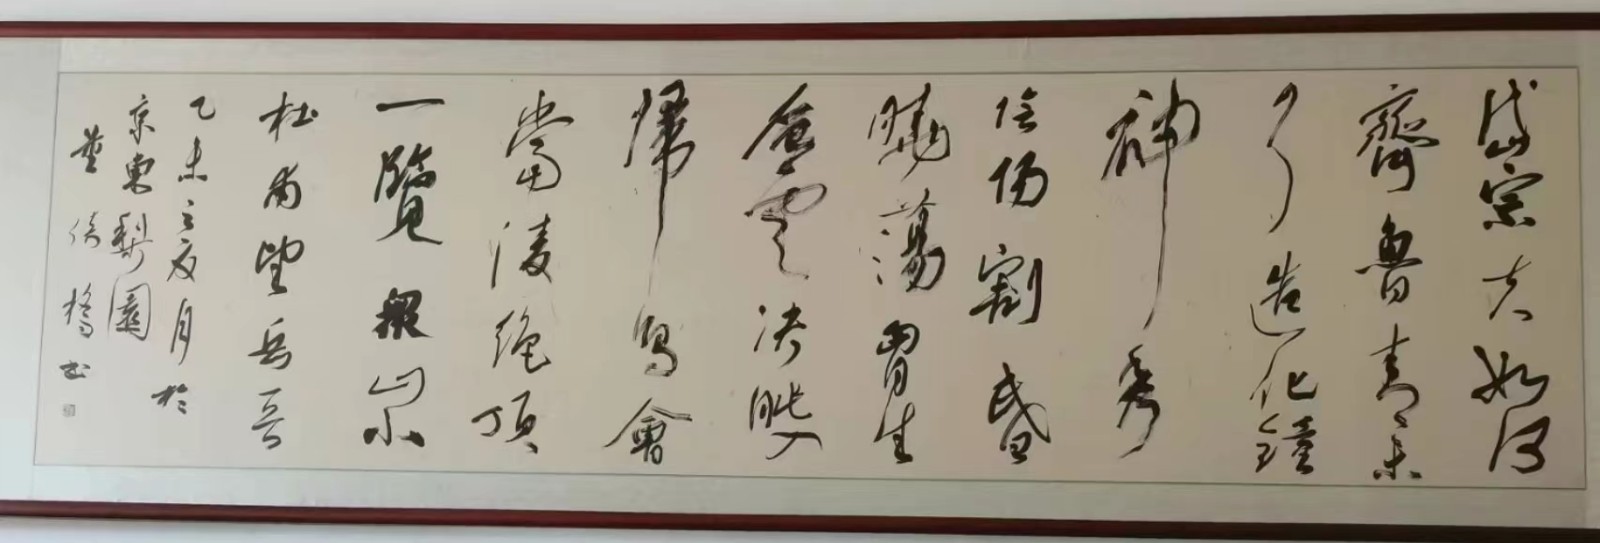 岱宗夫如何
齊魯青未
了造化鍾
神秀
陰陽割昏
曉蕩胸生
層雲決眥入
歸鳥會
當凌絕頂
一覽眾山小
杜甫望岳詩
乙未之夏月於
京東梨園
董倚橋書